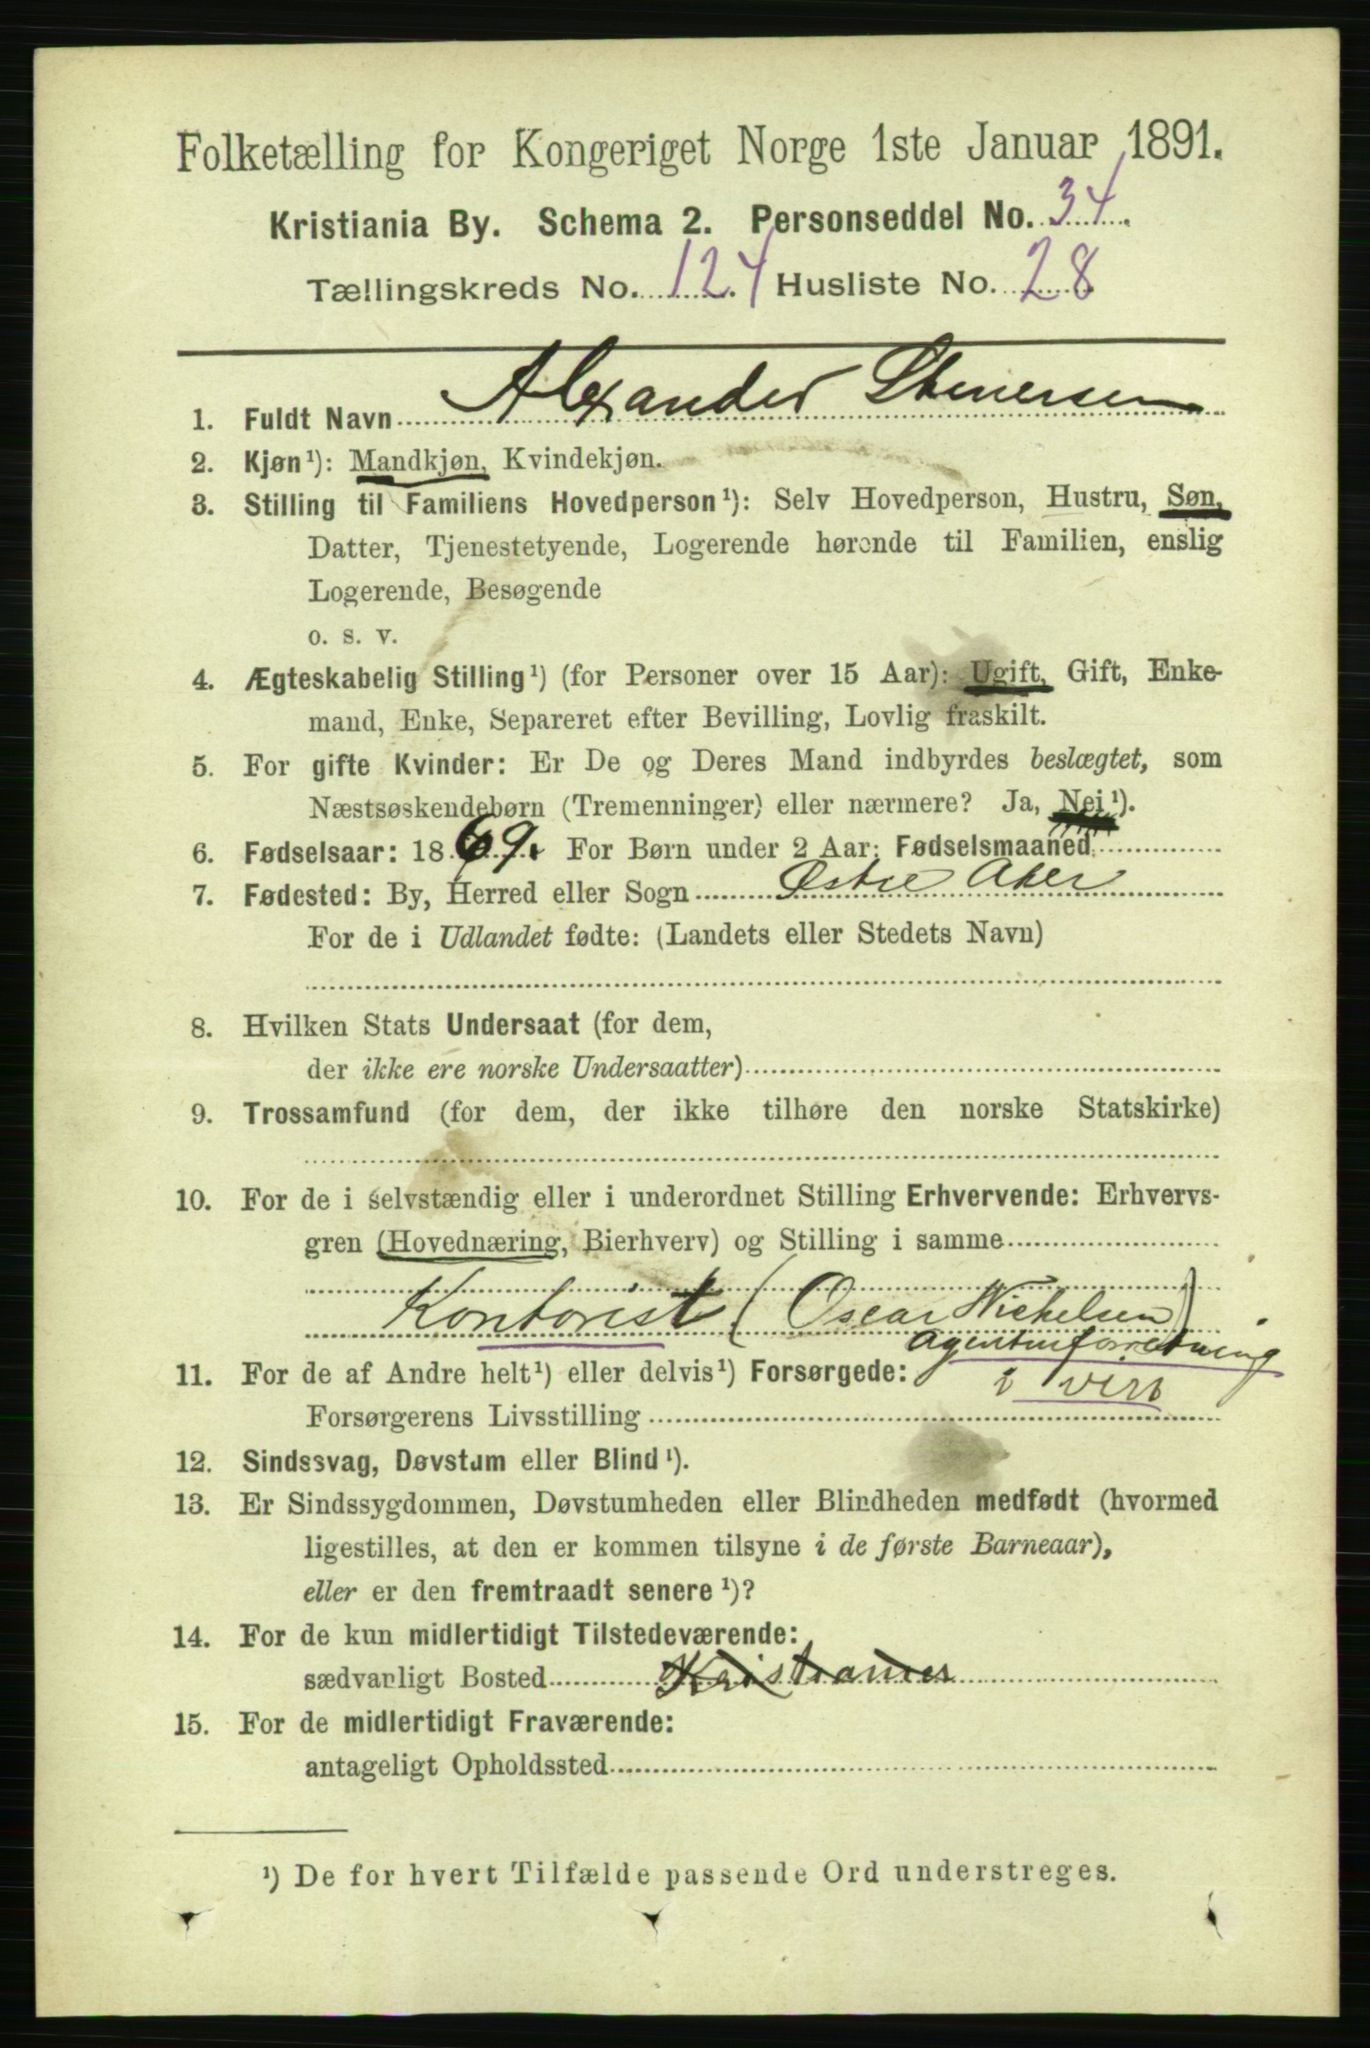 Folketælling for Kongeriget Norge 1ste Januar 1891.
Kristiania By. Schema 2. Personseddel No. 34.
Tællingskreds No. 124 Husliste No. 28
1. Fuldt Navn Alexander Stenersen
2. Kjøn¹): Mandkjøn, Kvindekjøn.
3. Stilling til Familiens Hovedperson¹): Selv Hovedperson, Hustru, Søn,
Datter, Tjenestetyende, Logerende hørende til Familien, enslig
Logerende, Besøgende
o. s. v.
4. Ægteskabelig Stilling¹) (for Personer over 15 Aar): Ugift, Gift, Enke-
mand, Enke, Separeret efter Bevilling, Lovlig fraskilt.
5. For gifte Kvinder: Er De og Deres Mand indbyrdes beslægtet, som
Næstsøskendebørn (Tremenninger) eller nærmere? Ja, Nei¹).
6. Fødselsaar: 1869. For Børn under 2 Aar: Fødselsmaaned
7. Fødested: By, Herred eller Sogn Østre Aker
For de i Udlandet fødte: (Landets eller Stedets Navn)
8. Hvilken Stats Undersaat (for dem,
der ikke ere norske Undersaatter)
9. Trossamfund (for dem, der ikke tilhøre den norske Statskirke)
10. For de i selvstændig eller i underordnet Stilling Erhvervende: Erhvervs-
gren (Hovednæring, Bierhverv) og Stilling i samme
Kontorist (Oscar Nickelsen)
Agenturforretning
11. For de af Andre helt¹) eller delvis¹) Forsørgede:
Forsørgerens Livsstilling
12. Sindssvag, Døvstum eller Blind¹).
13. Er Sindssygdommen, Døvstumheden eller Blindheden medfødt (hvormed
ligestilles, at den er kommen tilsyne i de første Barneaar),
eller er den fremtraadt senere¹)?
14. For de kun midlertidigt Tilstedeværende:
sædvanligt Bosted Kristiania
15. For de midlertidigt Fraværende:
antageligt Opholdssted
¹) De for hvert Tilfælde passende Ord understreges.